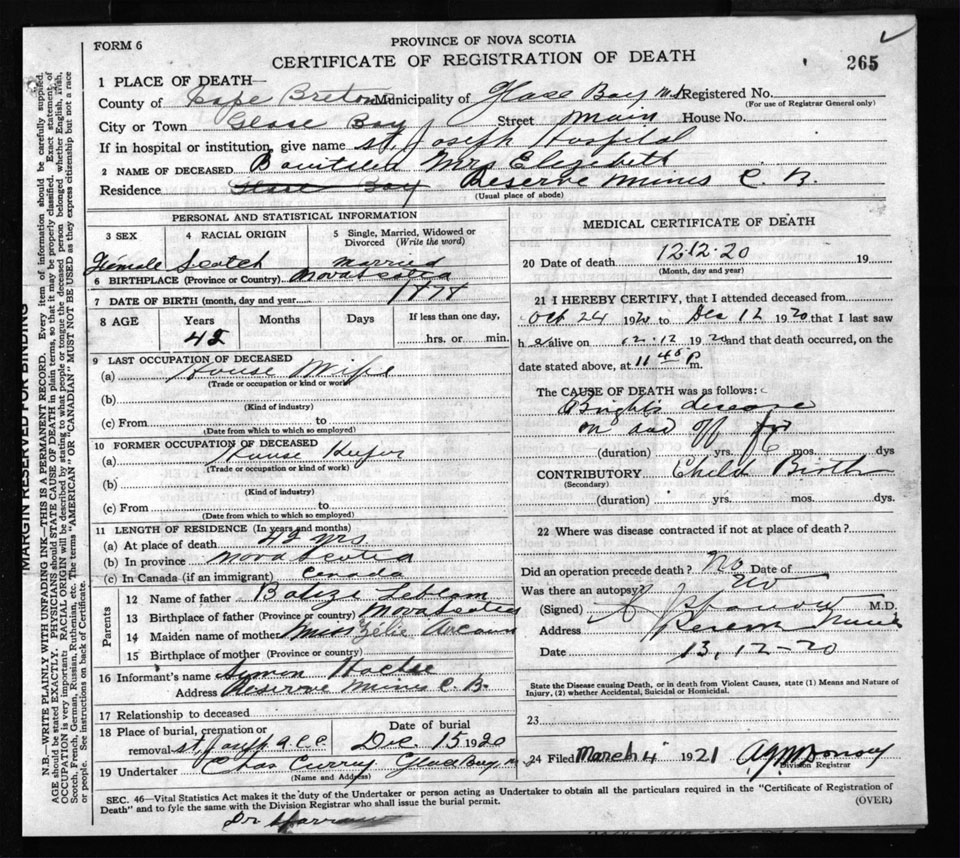 FORM 6
PROVINCE OF NOVA SCOTIA
CERTIFICATE OF REGISTRATION OF DEATH
265
1 PLACE OF DEATH—
County of Cape Breton Municipality of Glace Bay N.S. Registered No.
(For use of Registrar General only)
City or Town Glace Bay Street Main House No.
If in hospital or institution, give name St. Joseph Hospital
2 NAME OF DECEASED Mrs Elizabeth
Residence Glace Bay Reserve Mines C B.
(Usual place of abode)
PERSONAL AND STATISTICAL INFORMATION
3 SEX 4 RACIAL ORIGIN 5 Single, Married, Widowed or Divorced (Write the word)
Female Scotch Married
6 BIRTHPLACE (Province or Country) Nova Scotia
7 DATE OF BIRTH (month, day and year)
8 AGE Years Months Days If less than one day,
42 hrs. or min.
9 LAST OCCUPATION OF DECEASED
(a) House Wife
(Trade or occupation or kind of work)
(b)
(Kind of industry)
(c) From to
(Date from which to which so employed)
10 FORMER OCCUPATION OF DECEASED
(a) House
(Trade or occupation or kind of work)
(b)
(Kind of industry)
(c) From to
(Date from which to which so employed)
11 LENGTH OF RESIDENCE (In years and months)
(a) At place of death 42 yrs
(b) In province Nova Scotia
(c) In Canada (if an immigrant) Canada
Parents
12 Name of father
13 Birthplace of father (Province or country) Nova Scotia
14 Maiden name of mother Miss
15 Birthplace of mother (Province or country)
16 Informant's name Simon
Address Reserve Mines C. B.
17 Relationship to deceased
18 Place of burial, cremation or removal St. Joseph Date of burial Dec 15 1920
19 Undertaker Chas Curry Glace Bay
(Name and Address)
MEDICAL CERTIFICATE OF DEATH
20 Date of death 12.12.20 19
(Month, day and year)
21 I HEREBY CERTIFY, that I attended deceased from
Oct 24 1920 to Dec 12 1920 that I last saw
h e alive on 12.12 1920 and that death occurred, on the
date stated above, at 11 45 P m.
The CAUSE OF DEATH was as follows:
Bright's disease
on and off for
(duration) yrs. 6 mos. dys
CONTRIBUTORY Child Birth
(Secondary)
(duration) yrs. mos. dys.
22 Where was disease contracted if not at place of death?
Did an operation precede death? No Date of
Was there an autopsy? No
(Signed) M.D.
Address Reserve Mines
Date 13.12-20
State the Disease causing Death, or in death from Violent Causes, state (1) Means and Nature of
Injury, (2) whether Accidental, Suicidal or Homicidal.
23
24 Filed March 4 1921
Division Registrar
SEC. 46—Vital Statistics Act makes it the duty of the Undertaker or person acting as Undertaker to obtain all the particulars required in the "Certificate of Registration of
Death" and to fyle the same with the Division Registrar who shall issue the burial permit. (OVER)
Dr
MARGIN RESERVED FOR BINDING
N.B.—WRITE PLAINLY WITH UNFADING INK—THIS IS A PERMANENT RECORD. Every item of information should be carefully supplied.
AGE should be stated EXACTLY. PHYSICIANS should STATE CAUSE OF DEATH in plain terms, so that it may be properly classified. Exact statement of
OCCUPATION is very important. RACIAL ORIGIN will be described by stating to what people or tongue the deceased person belonged whether English, Irish,
Scotch, French, German, Russian, Ruthenian, etc. The terms "AMERICAN" OR "CANADIAN" MUST NOT BE USED as they express citizenship but not a race
or people. See instructions on back of Certificate.